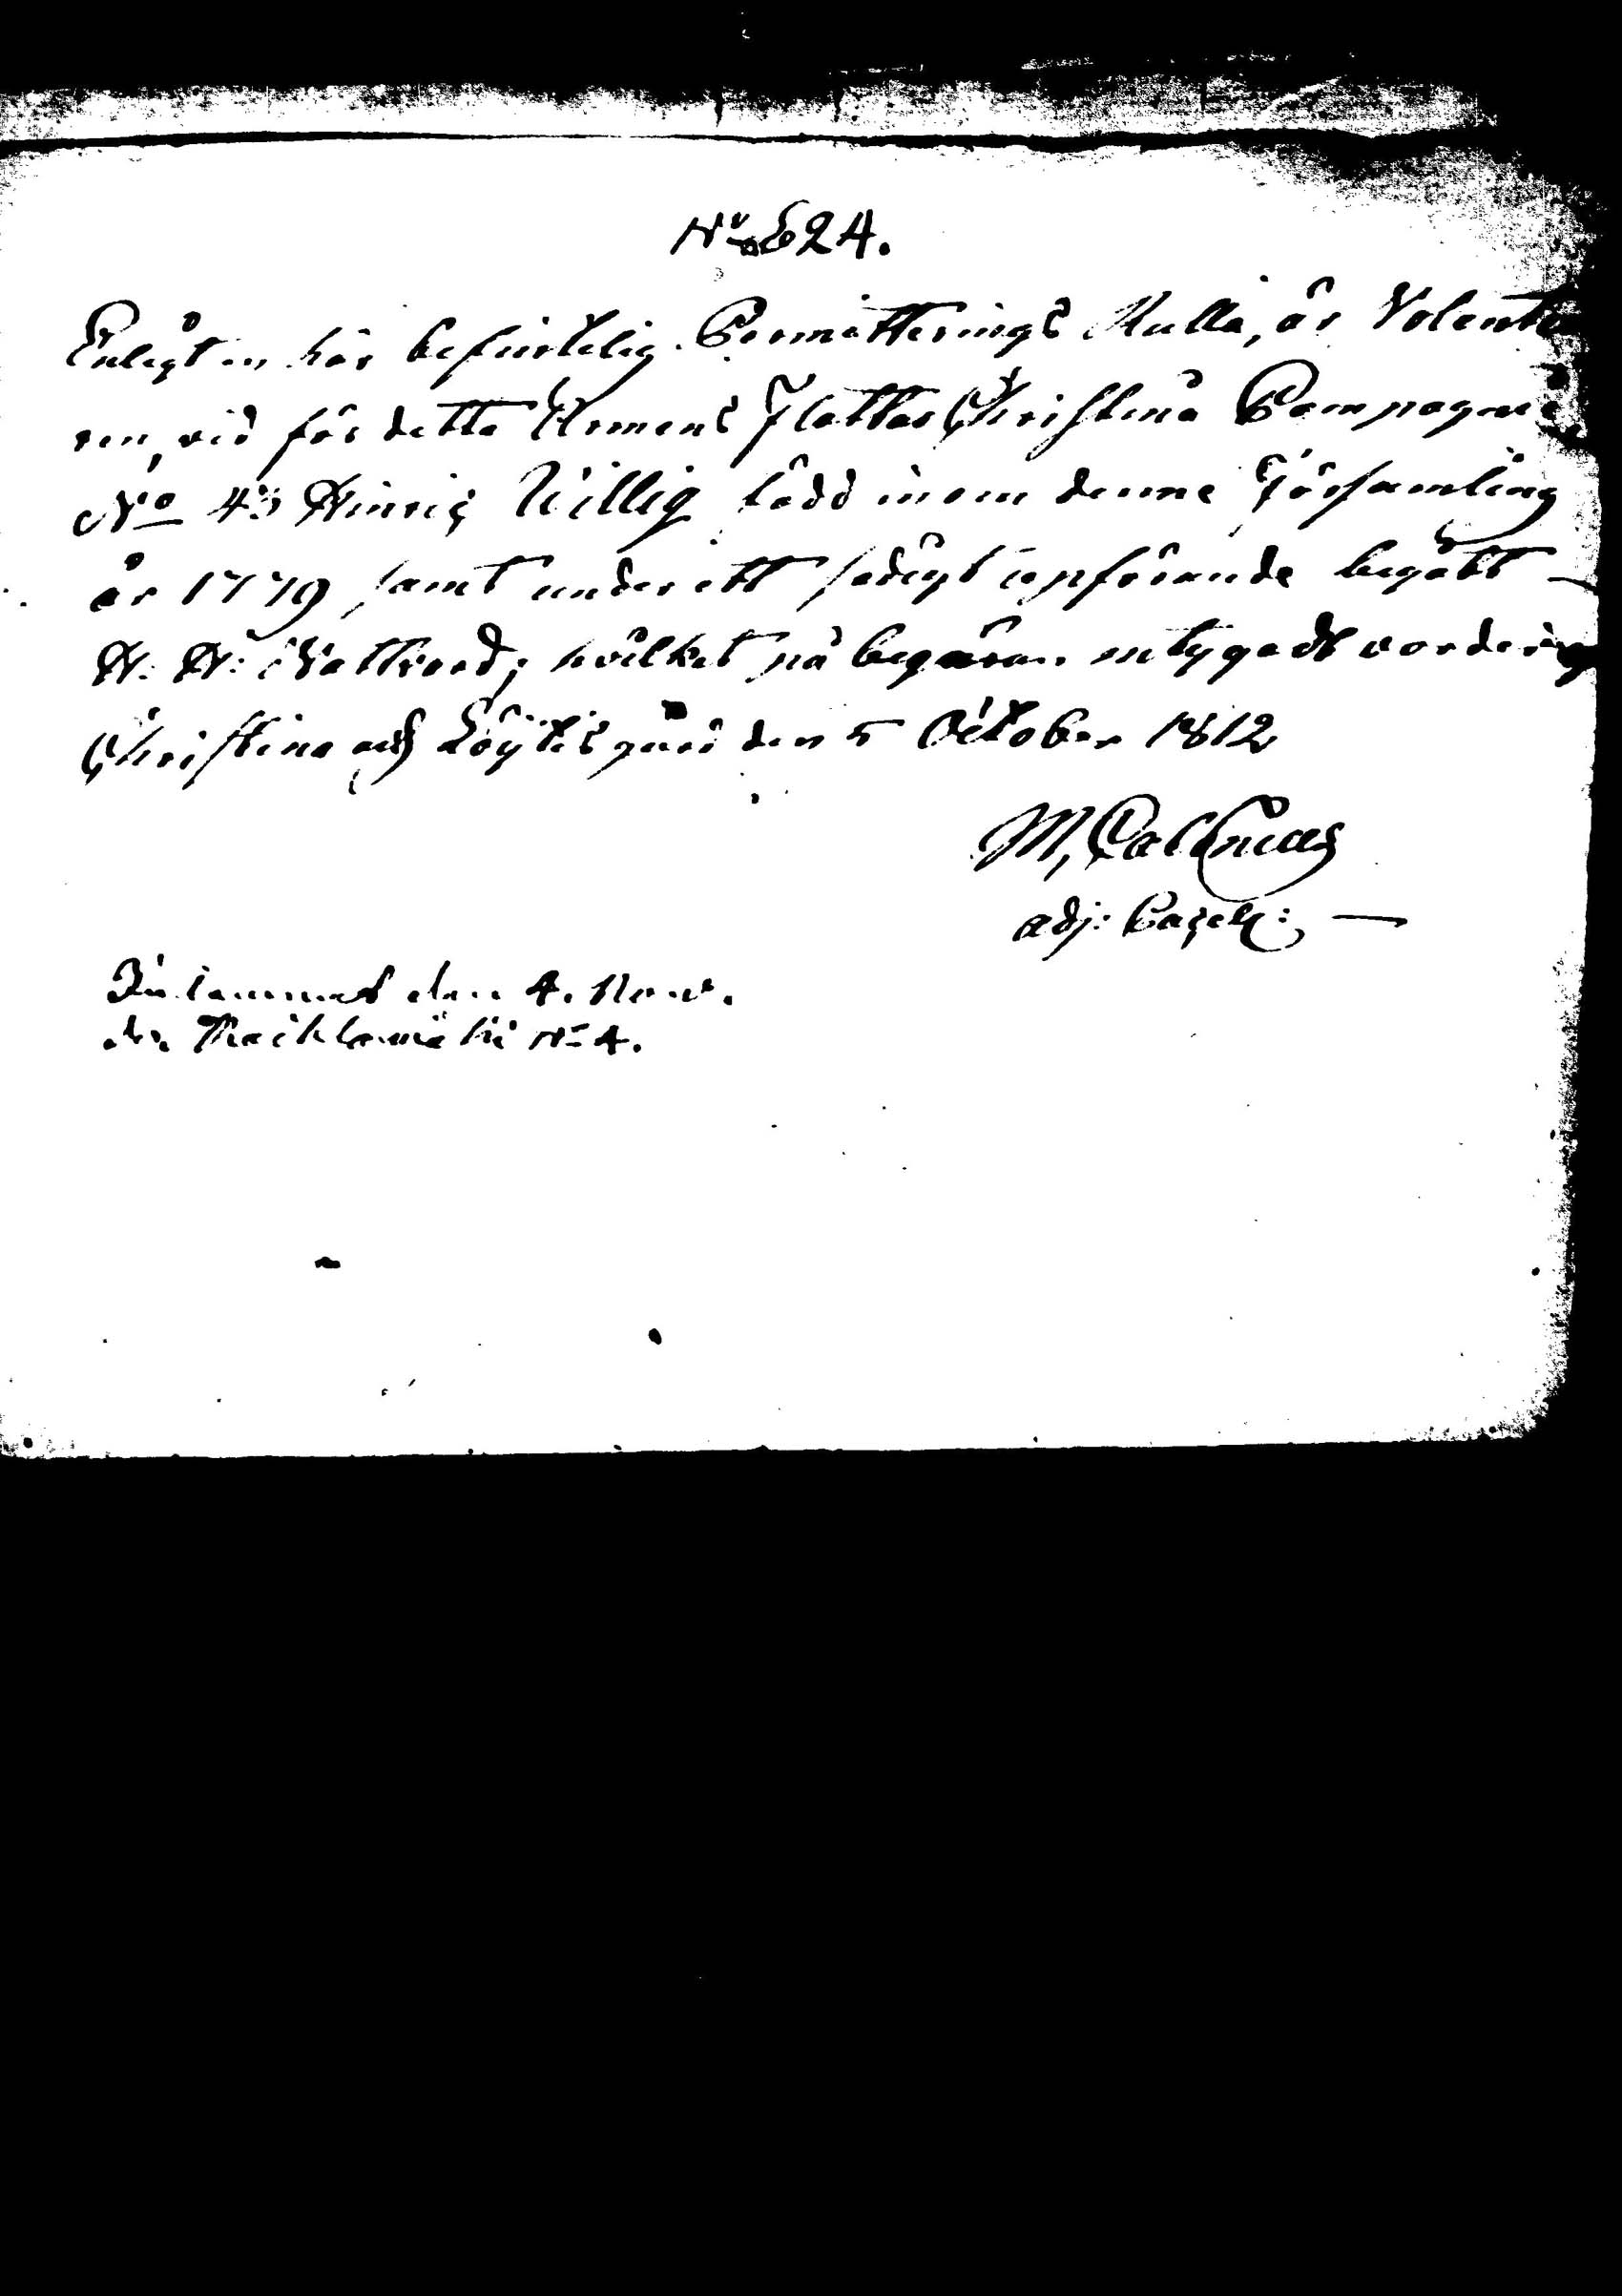 No 524.
Enligt en här befintelig Permitterings Rulla, är Volenté
ren, vid för detta Armens Flottas Christina Compagnie
No 43 Hinric Willig född inom denne Församling
år 1779 samt under ett sedigt upförande begått
H. H: Nattvard; hvilket på begäran intygadt varder;
Christina och Löytis gård den 5 October 1812
M, Calenius
adj: Pacell:
Inlemnat den 4. Nov.